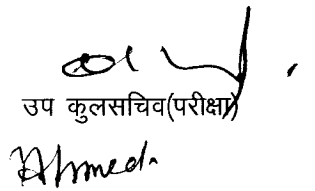 उप कुलसचिव(परीक्षा)
Ahmed.